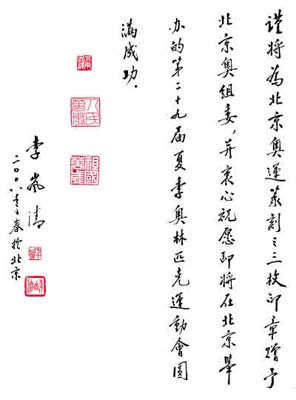 谨将为北京奥运篆刻之三枚印章赠予
北京奥组委，并衷心祝愿即将在北京举
办的第二十九届夏季奥林匹克運動會圆
满成功．
李岚清
二〇〇八年春於北京